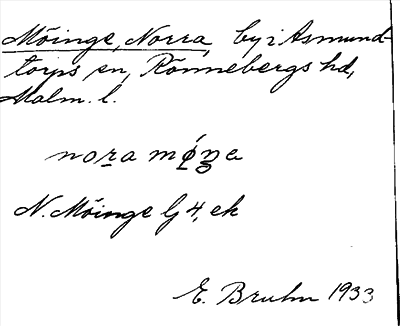 Möinge, Norra, by i Asmund-
torps sn, Rönnebergs hd,
Malm. l.
nora möŋe
N. Möinge G4, ek
E. Bruhn 1933